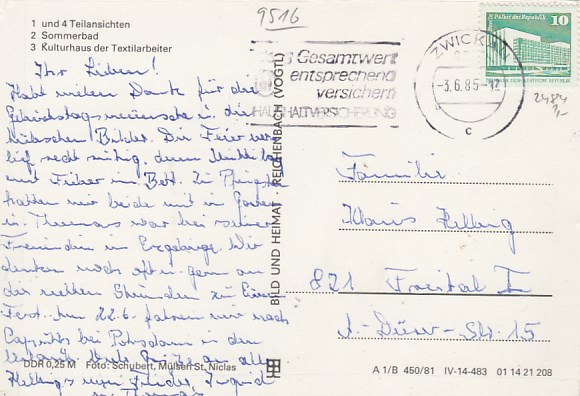 9516
1 und 4 Teilansichten
2 Sommerbad
3 Kulturhaus der Textilarbeiter
Ihr Lieben!
Habt vielen Dank für die
Geburtstagswünsche u. die
hübschen Bilder. Die Feier ver-
lief recht ruhig, denn
mit Fieber im Bett. Zu Pfingsten
hatten wir beide mit in
u. Thomas war bei seinen
Freunden im Erzgebirge. Wir
denken noch oft u. gern an
die netten Stunden zu Eurem
Fest. Am 22.6. fahren wir nach
Caputh bei Potsdam in den
Urlaub. Viele Grüße an alle
Hellwigs von
u. Thomas
DDR 0,25 M Foto: Schubert, Mülsen St. Niclas
BILD UND HEIMAT REICHENBACH (VOGTL)
Gesamtwert
entsprechend
versichern
HAUSHALTVERSICHERUNG
ZWICKAU
-3.6.85-12
c
10
Palast der Republik
2484
Familie
Klaus
821 Freital I
A.-Dürer-Str. 15
A 1/B 450/81 IV-14-483 01 14 21 208